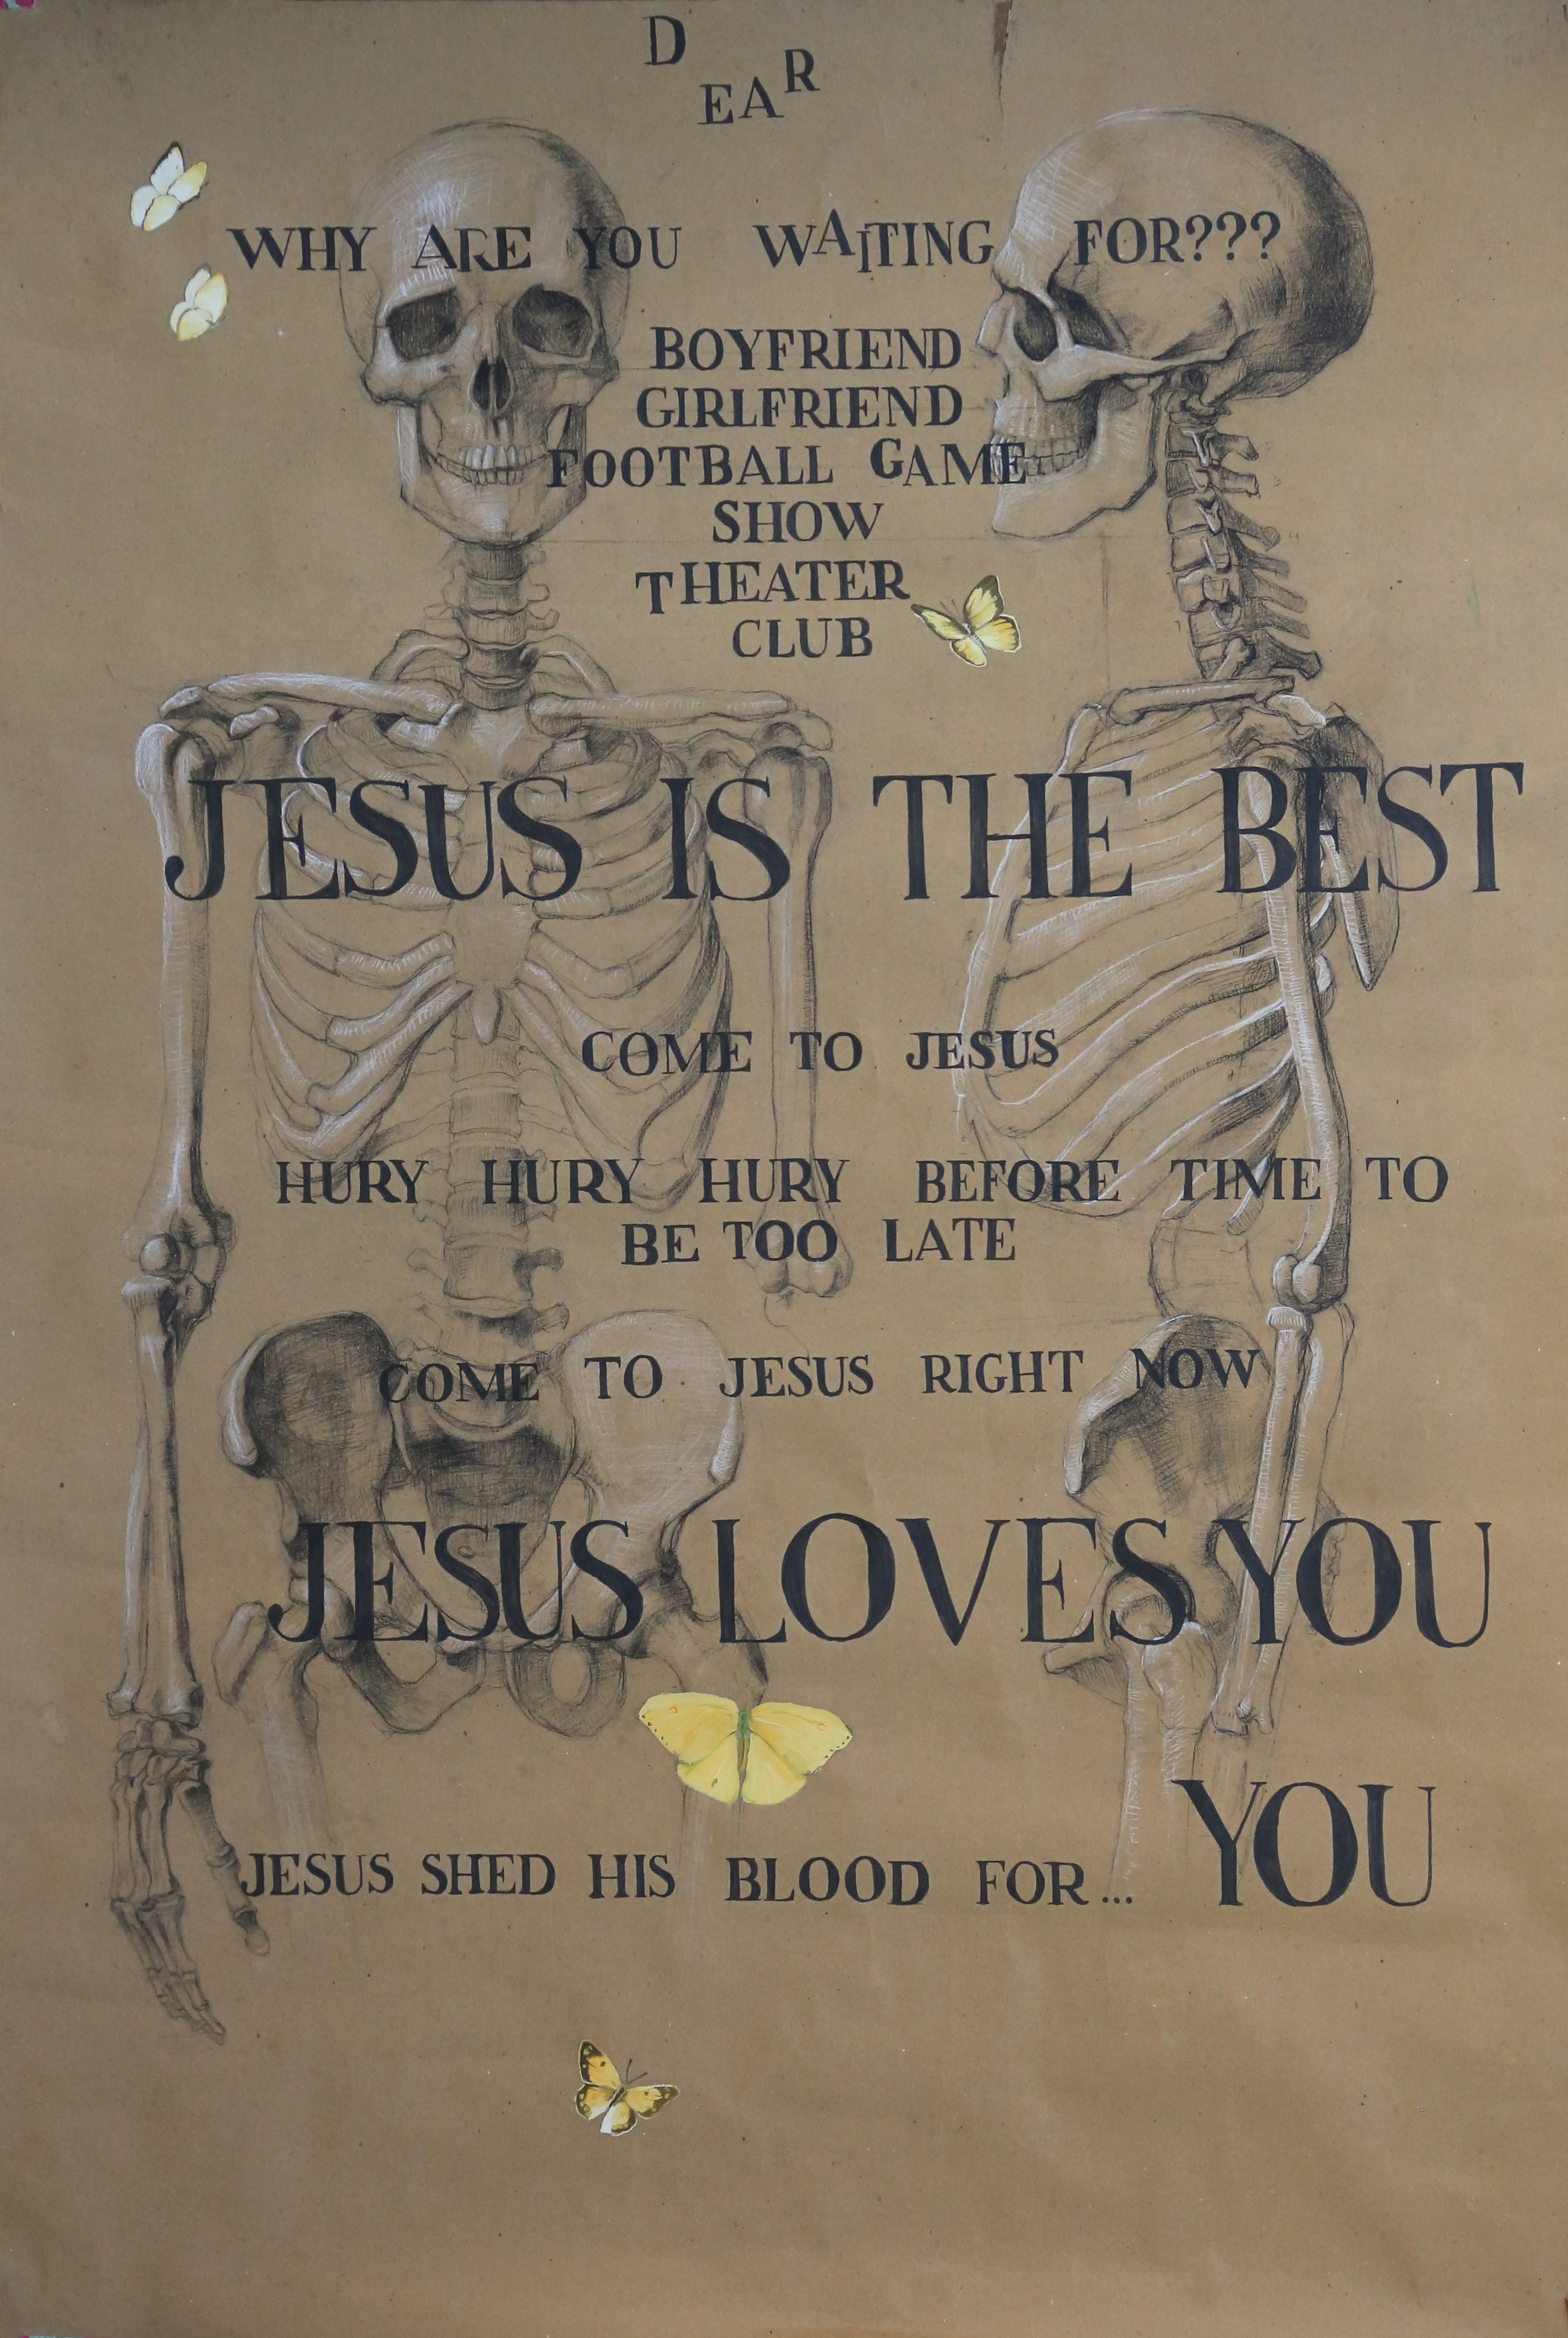 DEAR
WHY ARE YOU WAITING FOR???
BOYFRIEND
GIRLFRIEND
FOOTBALL GAME
SHOW
THEATER
CLUB
JESUS IS THE BEST
COME TO JESUS
HURY HURY HURY BEFORE TIME TO
BE TOO LATE
COME TO JESUS RIGHT NOW
JESUS LOVES YOU
JESUS SHED HIS BLOOD FOR... YOU